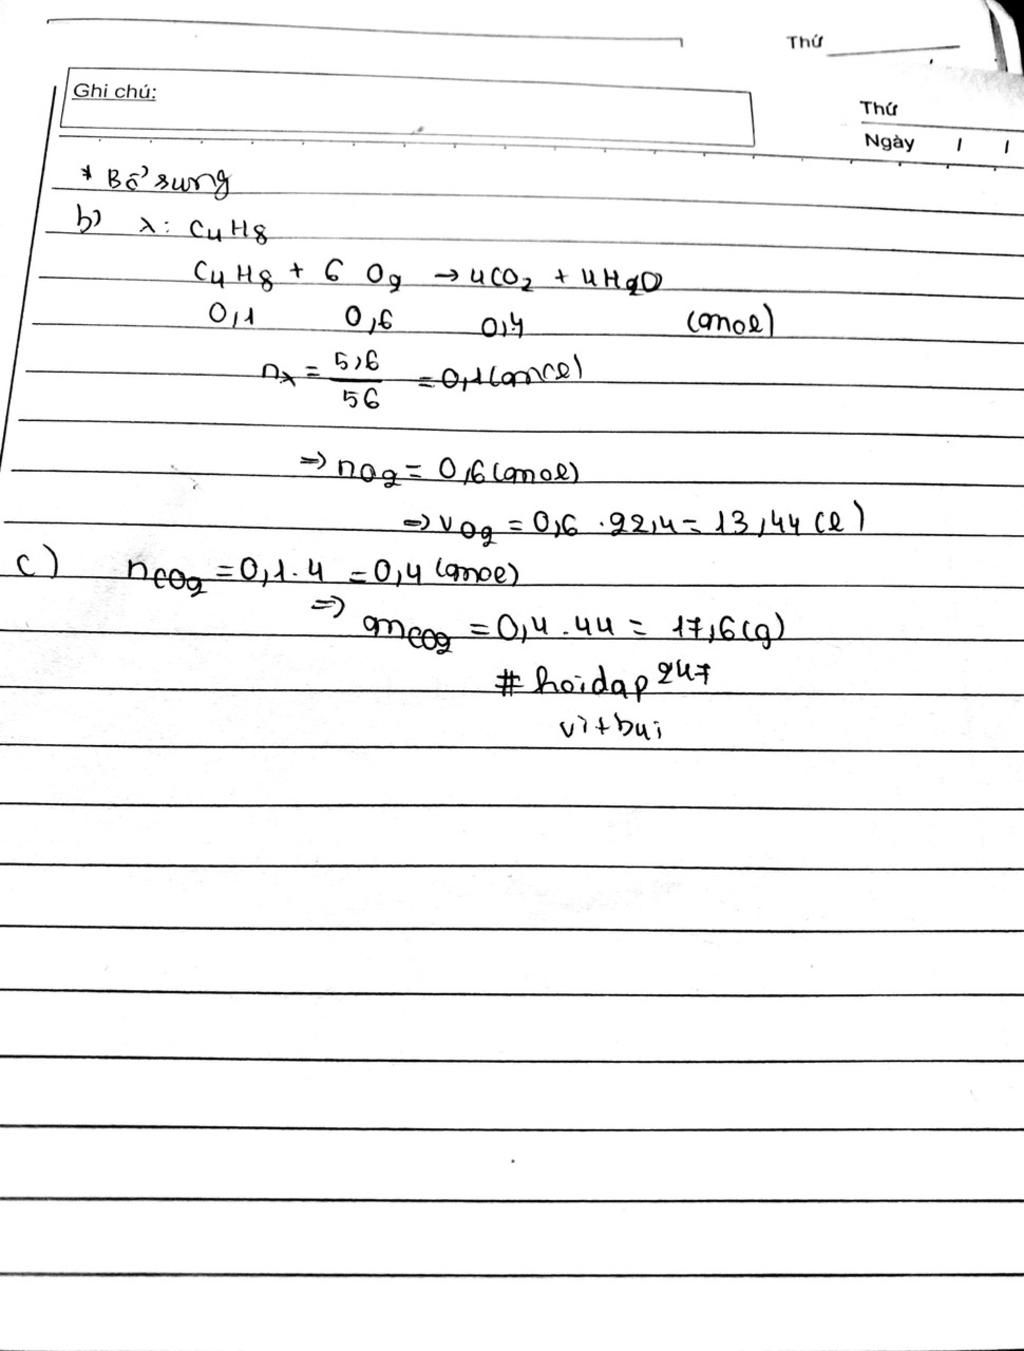 Thứ
Ghi chú:
Thứ
Ngày / /
* Bổ sung
b) X: C4H8
C4H8 + 6 O2 → 4CO2 + 4H2O
0,1 0,6 0,4 (mol)
nX = 5,6 / 56 = 0,1 (mol)
=> nO2 = 0,6 (mol)
=> VO2 = 0,6 . 22,4 = 13,44 (l)
c) nCO2 = 0,1 . 4 = 0,4 (mol)
=> mCO2 = 0,4 . 44 = 17,6 (g)
# hoidap247
vitbui